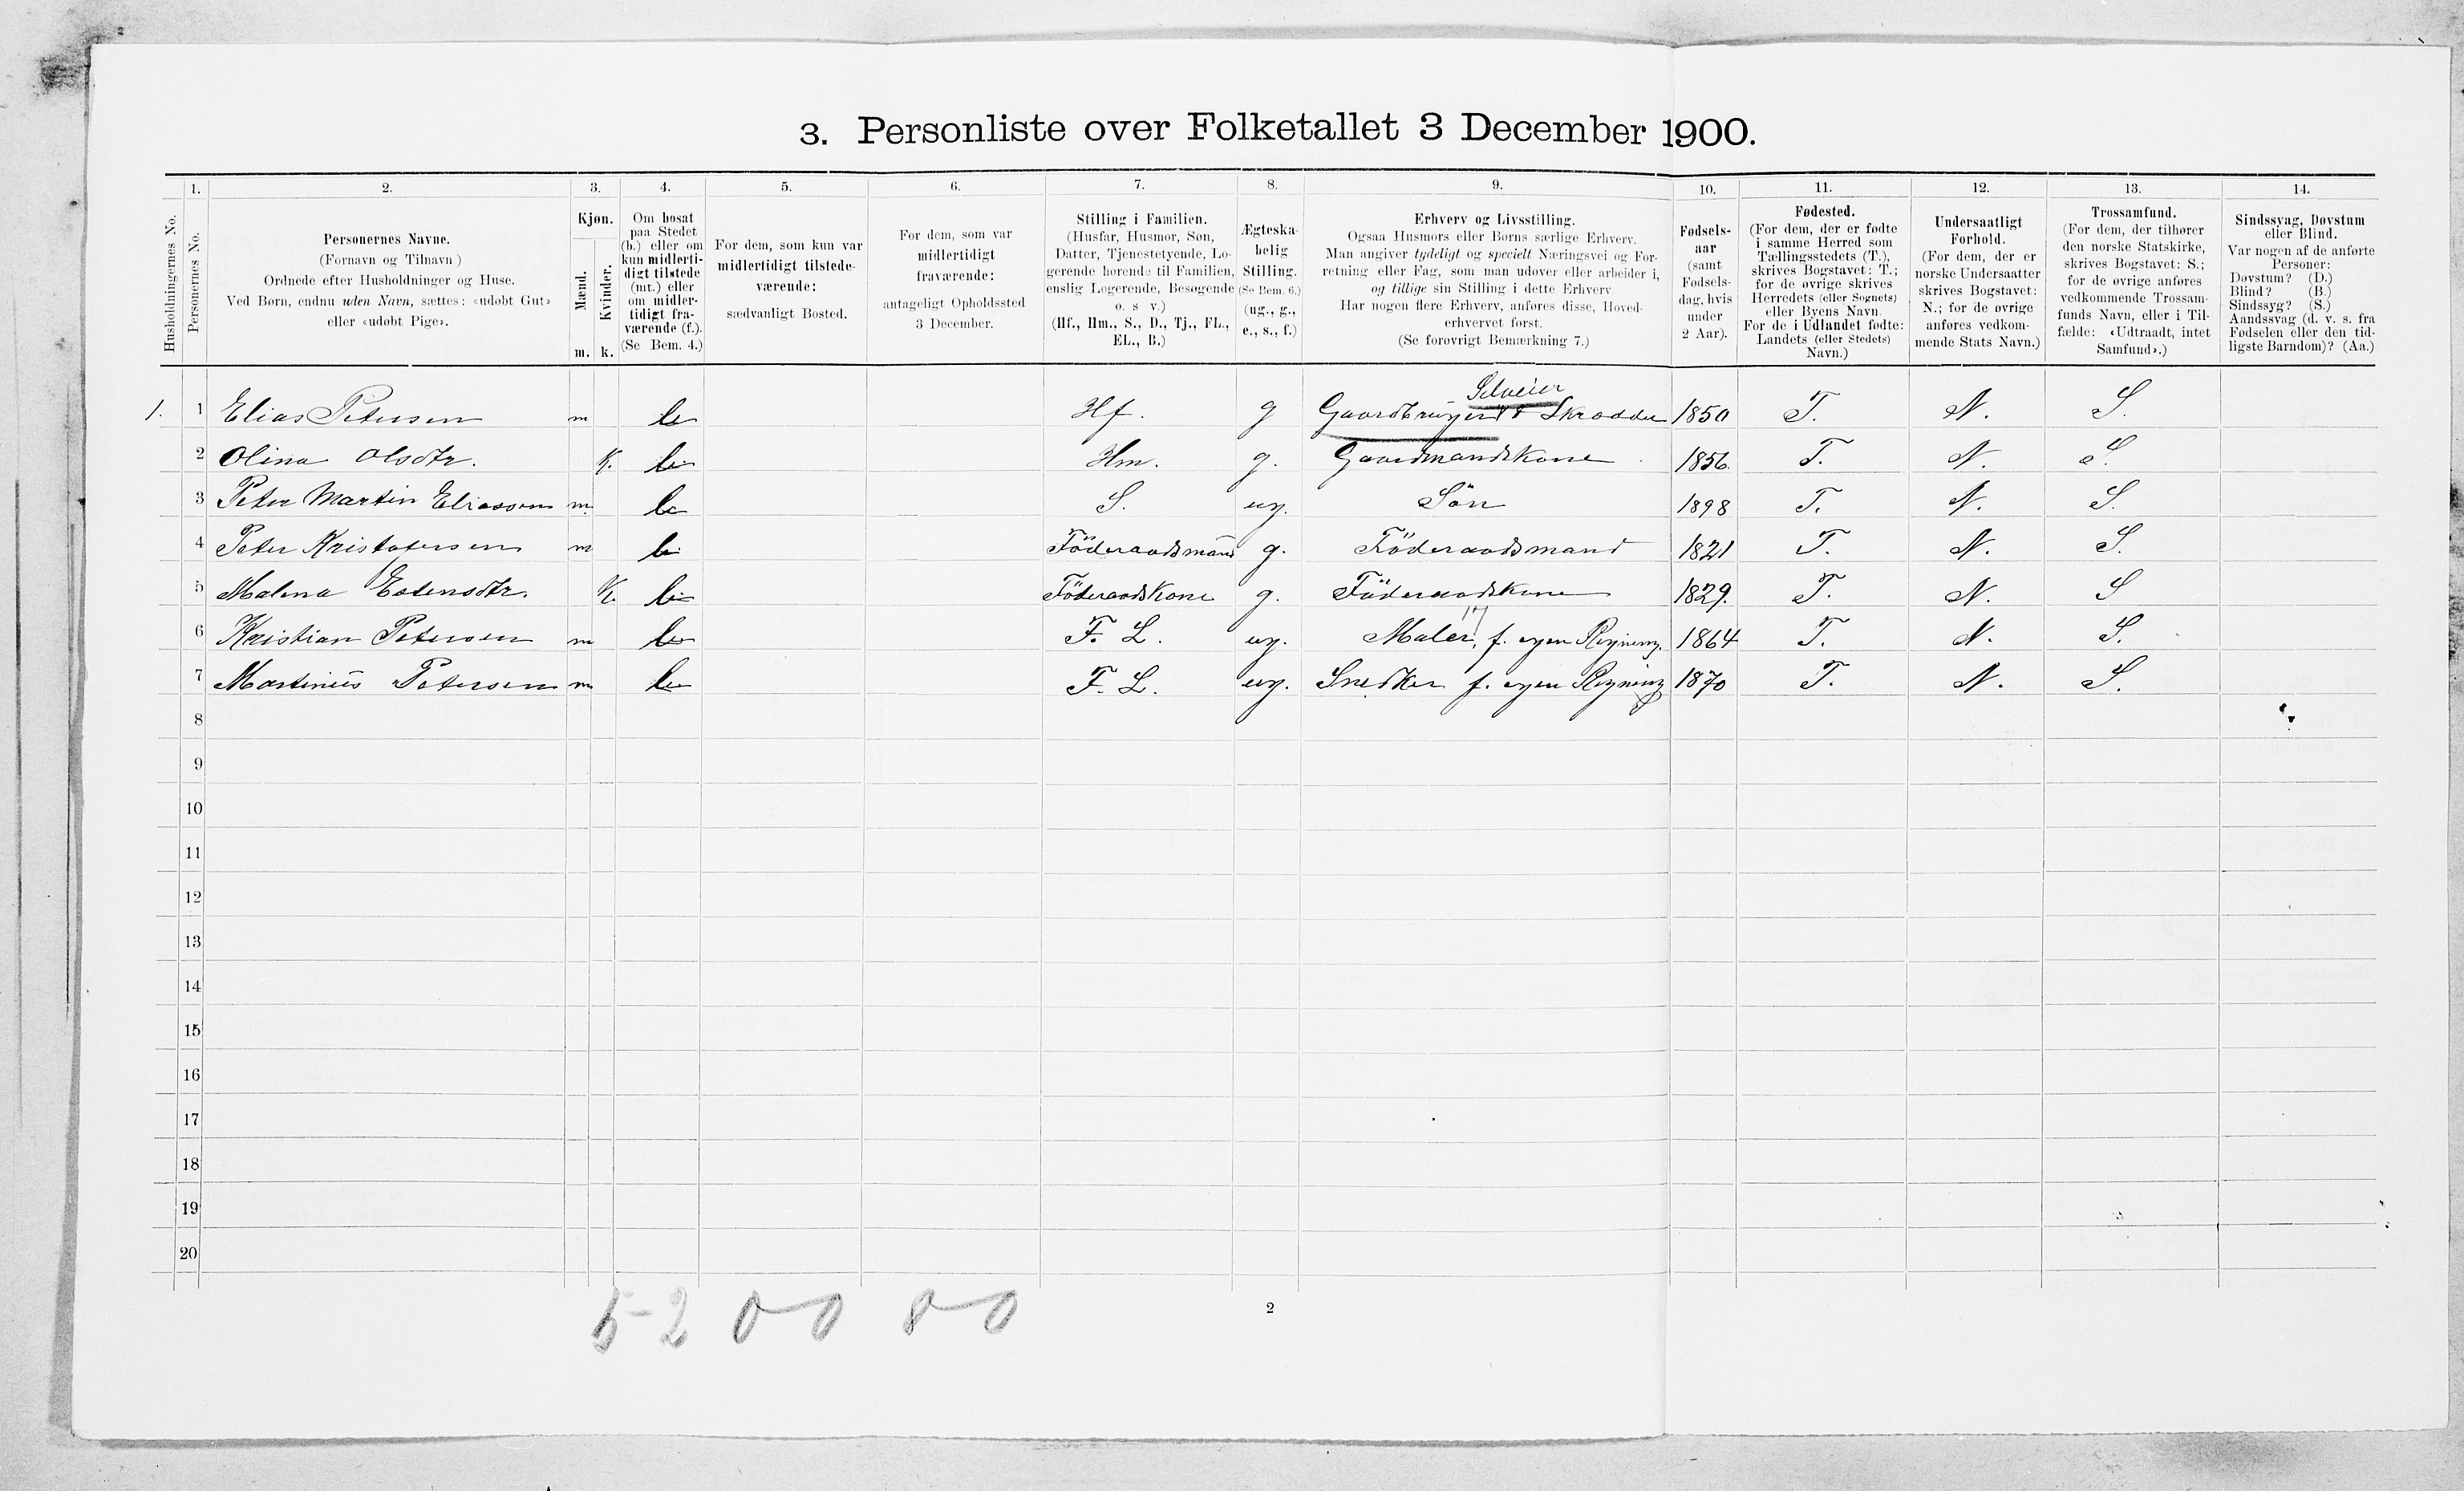 3. Personliste over Folketallet 3 December 1900.
1. 2. 3. 4. 5. 6. 7. 8. 9. 10. 11. 12. 13. 14.
Husholdningernes No.
Personernes No.
Personernes Navne.
(Fornavn og Tilnavn)
Ordnede efter Husholdninger og Huse.
Ved Børn, endnu uden Navn, sættes: «udøbt Gut»
eller «udøbt Pige».
Kjøn.
Mænd.
Kvinder.
m. k.
Om bosat
paa Stedet
(b.) eller om
kun midlerti-
digt tilstede
(mt.) eller
om midler-
tidigt fra-
værende (f.).
(Se Bem. 4.)
For dem, som kun var
midlertidigt tilstede-
værende:
sædvanligt Bosted.
For dem, som var
midlertidigt
fraværende:
antageligt Opholdssted
3 December.
Stilling i Familien.
(Husfar, Husmor, Søn,
Datter, Tjenestetyende, Lo-
gerende hørende til Familien,
enslig Logerende, Besøgende
o. s v.)
(Hf., Hm., S., D., Tj., FL.,
EL., B.)
Ægteska-
belig
Stilling.
(Se Bem. 6.)
(ug., g.,
e., s., f.)
Erhverv og Livsstilling.
Ogsaa Husmors eller Børns særlige Erhverv.
Man angiver tydeligt og specielt Næringsvei og For-
retning eller Fag, som man udøver eller arbeider i,
og tillige sin Stilling i dette Erhverv.
Har nogen flere Erhverv, anføres disse, Hoved-
erhvervet først.
(Se forøvrigt Bemærkning 7.)
Fødsels-
aar
(samt
Fødsels-
dag, hvis
under
2 Aar).
Fødested.
(For dem, der er fødte
i samme Herred som
Tællingsstedets (T.),
skrives Bogstavet: T.;
for de øvrige skrives
Herredets (eller Sognets)
eller Byens Navn.
For de i Udlandet fødte:
Landets (eller Stedets)
Navn.)
Undersaatligt
Forhold.
(For dem, der er
norske Undersaatter
skrives Bogstavet:
N.; for de øvrige
anføres vedkom-
mende Stats Navn.)
Trossamfund.
(For dem, der tilhører
den norske Statskirke,
skrives Bogstavet: S.;
for de øvrige anføres
vedkommende Trossam-
funds Navn, eller i Til-
fælde: «Udtraadt, intet
Samfund».)
Sindssvag, Døvstum
eller Blind.
Var nogen af de anførte
Personer:
Døvstum? (D.)
Blind? (B.)
Sindssyg? (S.)
Aandssvag (d. v. s. fra
Fødselen eller den tid-
ligste Barndom)? (Aa.)
Selveier
1. 1 Elias Petersen m b Hf. g Gaardbruger & Skrædder 1850 T. N. S.
2 Olina Olsdtr. K. b Hm. g. Gaardmandskone 1856. T. N. S.
3 Peter Martin Eliassen m. b S. ug. Sön 1898 T. N. S.
4 Peter Kristofersen m b Föderaadsmand g. Föderaadsmand 1821 T. N. S.
5 Malena Estensdtr. K. b Föderaadskone g. Föderaadskone 1829. T. N. S
17
6 Kristian Petersen m b F. L. ug. Maler, f. egen Regning. 1864 T. N. S.
7 Martinius Petersen m b F. L. ug. Snedker f. egen Regning 1870 T. N. S.
8
9
10
11
12
13
14
15
16
17
18
19
20
5-2 0-0 8-0
2